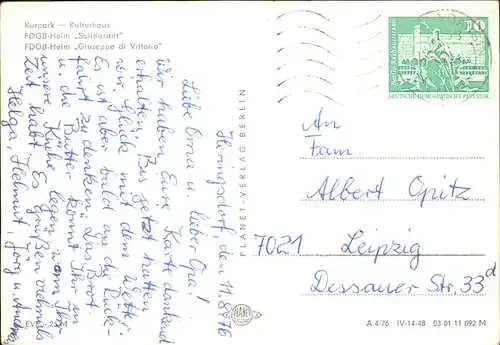 Kurpark — Kulturhaus
FDGB-Heim „Solidarität"
FDGB-Heim „Giuseppe di Vittorio"
10
DEUTSCHE DEMOKRATISCHE REPUBLIK
Heringsdorf, den 11.8.76
Liebe Oma u. lieber Opa!
Wir haben Eure Karte dankend
erhalten. Bis jetzt hatten
wir Glück mit dem Wetter.
Es ist aber bald an die Rück-
fahrt zu denken. Das Brot
u. die Butter könnt Ihr in
unsere Küche legen, wenn Ihr
Zeit habt. Es grüßen vielmals
Helga, Helmut, Jörg u. Andrea
PLANET-VERLAG BERLIN
PLANET
An
Fam.
Albert Opitz
7021 Leipzig
Dessauer Str. 33d
EVP -,25 M
A 4/76 IV-14-48 03 01 11 092 M